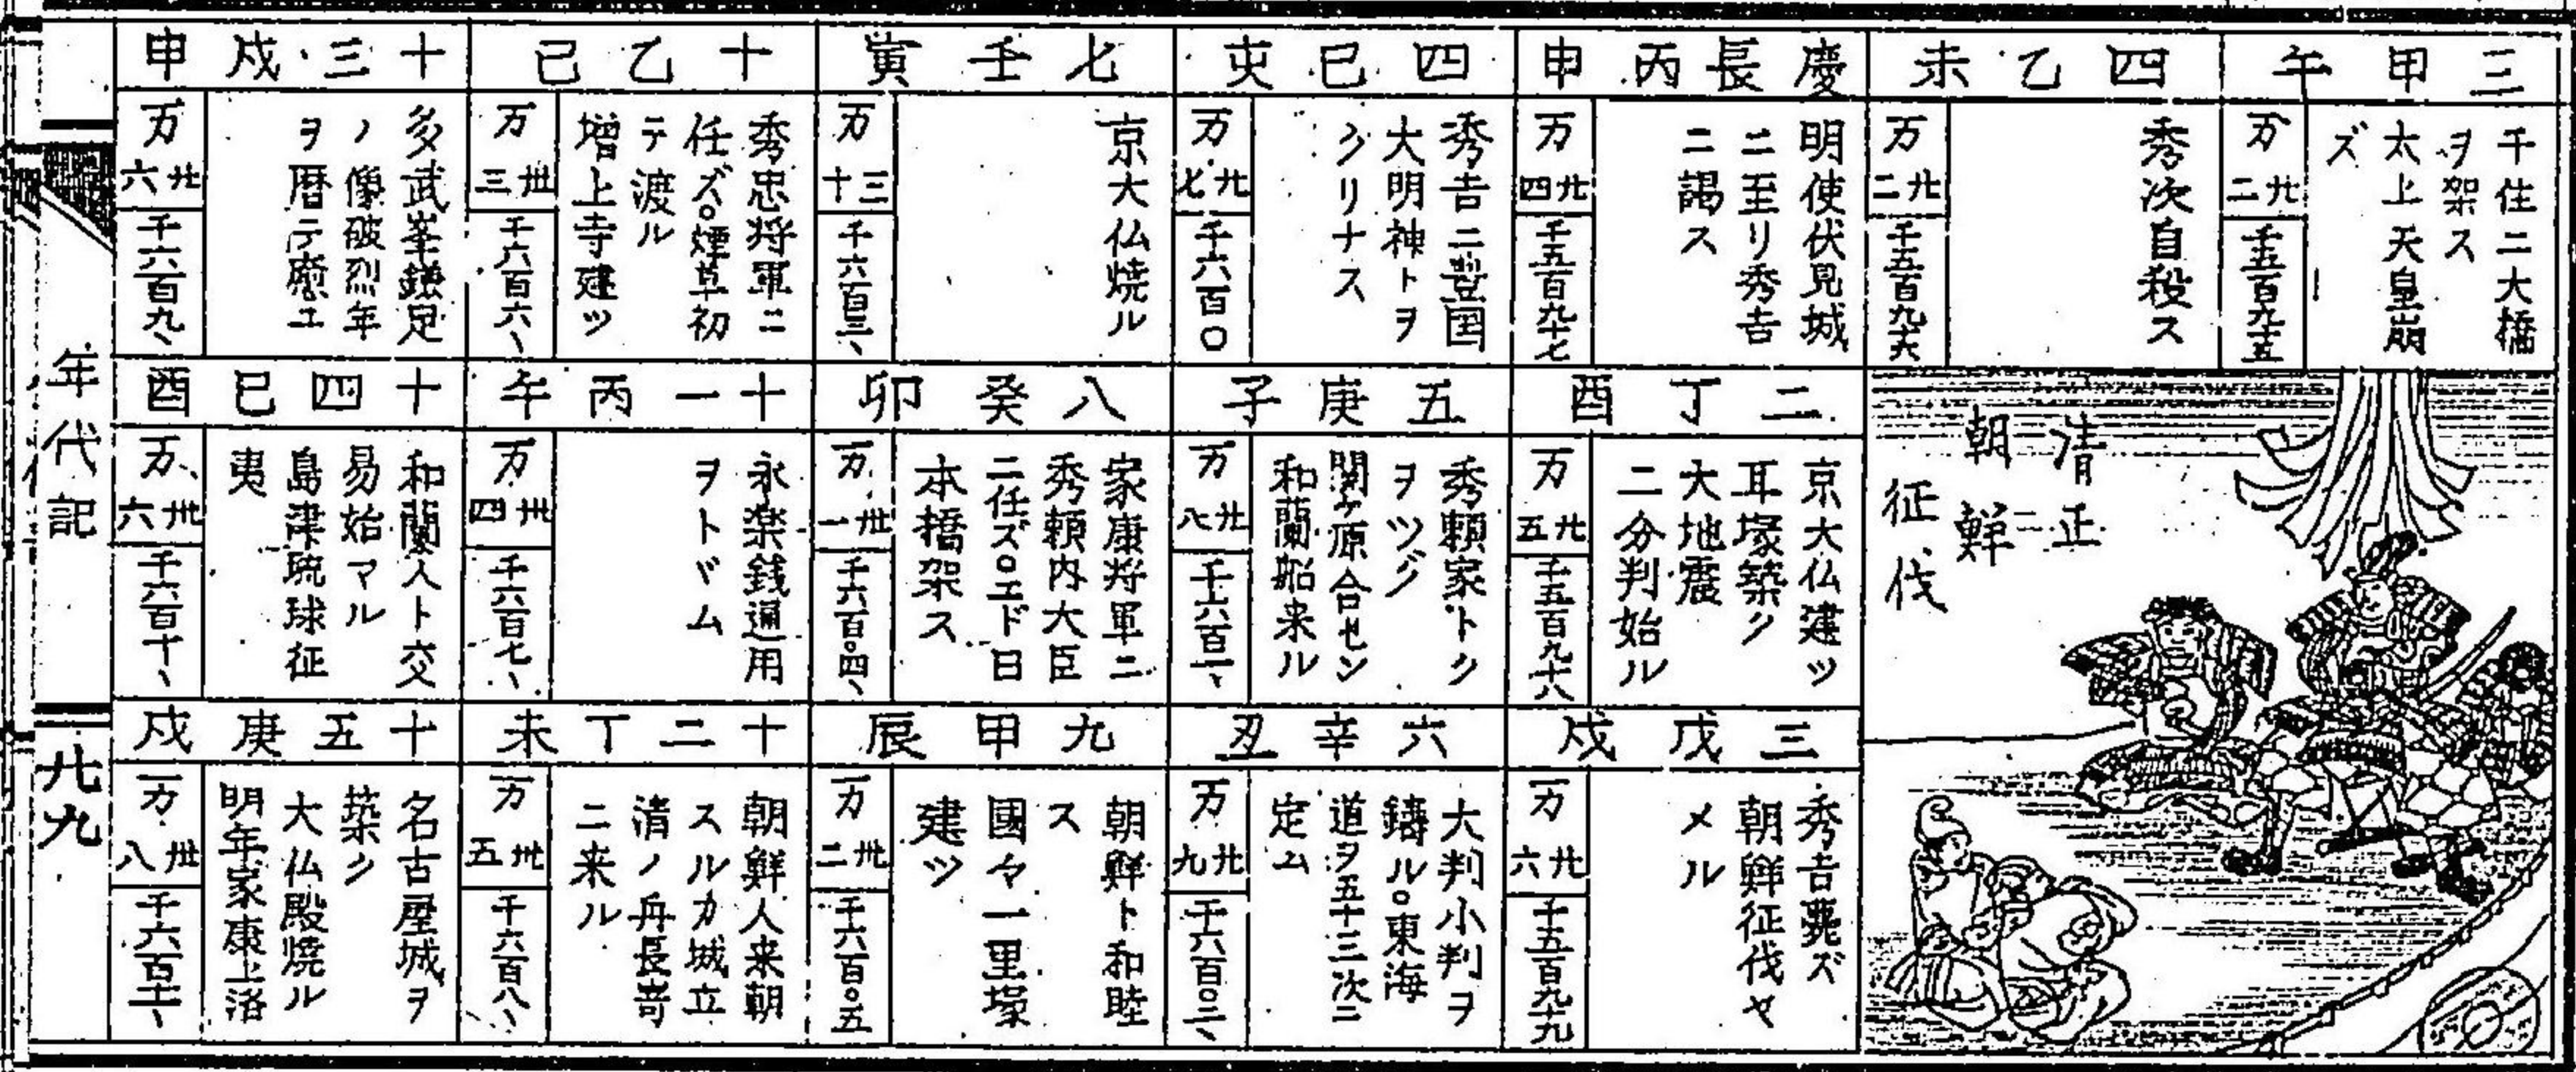 三甲午
千住ニ大橋
ヲ架ス
太上天皇崩
ズ
万廿二
千五百九十五
四乙未
秀次自殺ス
万廿二
千五百九十六
清正
朝鮮ニ
征伐
慶長丙申
明使伏見城
ニ至リ秀吉
ニ謁ス
万廿四
千五百九十七
二丁酉
京大仏建ツ
耳塚築ク
大地震
二分判始ル
万廿五
千五百九十八
三戊戌
秀吉薨ズ
朝鮮征伐ヤ
メル
万廿六
千五百九十九
四巳亥
秀吉ニ豊国
大明神トヲ
クリナス
万廿七
千六百〇
五庚子
秀頼家トク
ヲツグ
関ヶ原合セン
和蘭船来ル
万廿八
千六百一、
六辛丑
大判小判ヲ
鋳ル。東海
道ヲ五十三次ニ
定ム
万廿九
千六百〇二、
七壬寅
京大仏焼ル
万三十
千六百三、
八癸卯
家康将軍ニ
秀頼内大臣
ニ任ズ。エド日
本橋架ス
万卅一
千六百〇四、
九甲辰
朝鮮ト和睦
ス
國々一里塚
建ツ
万卅二
千六百〇五
十乙己
秀忠将軍ニ
任ズ。煙草初
テ渡ル
増上寺建ツ
万卅三
千六百六、
十一丙午
永楽銭通用
ヲトヾム
万卅四
千六百七、
十二丁未
朝鮮人来朝
スルカ城立
清ノ丹長嵜
ニ来ル
万卅五
千六百八、
十三戊申
多武峯鎌足
ノ像破烈年
ヲ暦テ癒ユ
万廿六
千六百九、
十四巳酉
和蘭人ト交
易始マル
島津琉球征
夷
万卅六
千六百十、
十五庚戌
名古屋城ヲ
築ク
大仏殿焼ル
明年家康上洛
万卅八
千六百十一、
年代記
廿九